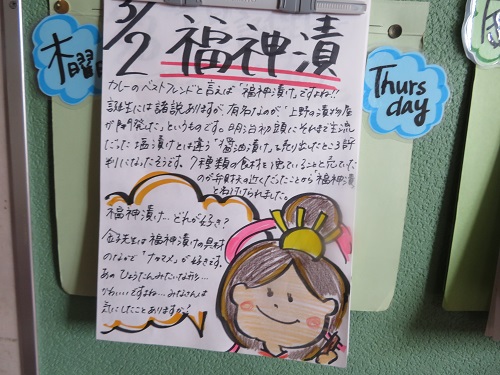 3/2 福神漬
木曜
Thurs
day
カレーのベストフレンドと言えば「福神漬け」ですよね!!
誕生には諸説ありますが、有名なのが、「上野の漬物屋
が開発した」というものです。明治初頭にそれまで主流
だった塩漬けとは違う「醤油漬け」を売り出したところ評
判になったそうです。7種類の食材を使っていることと、売っていた
のが弁財天の近くだったことから「福神漬」
と名付けられました。
福神漬け…どれが好き?
金子先生は福神漬けの具材
のなかで「ナタマメ」が好きです。
あの ひょうたんみたいな形…
かわいいですよね…みなさんは
気にしたことありますか?